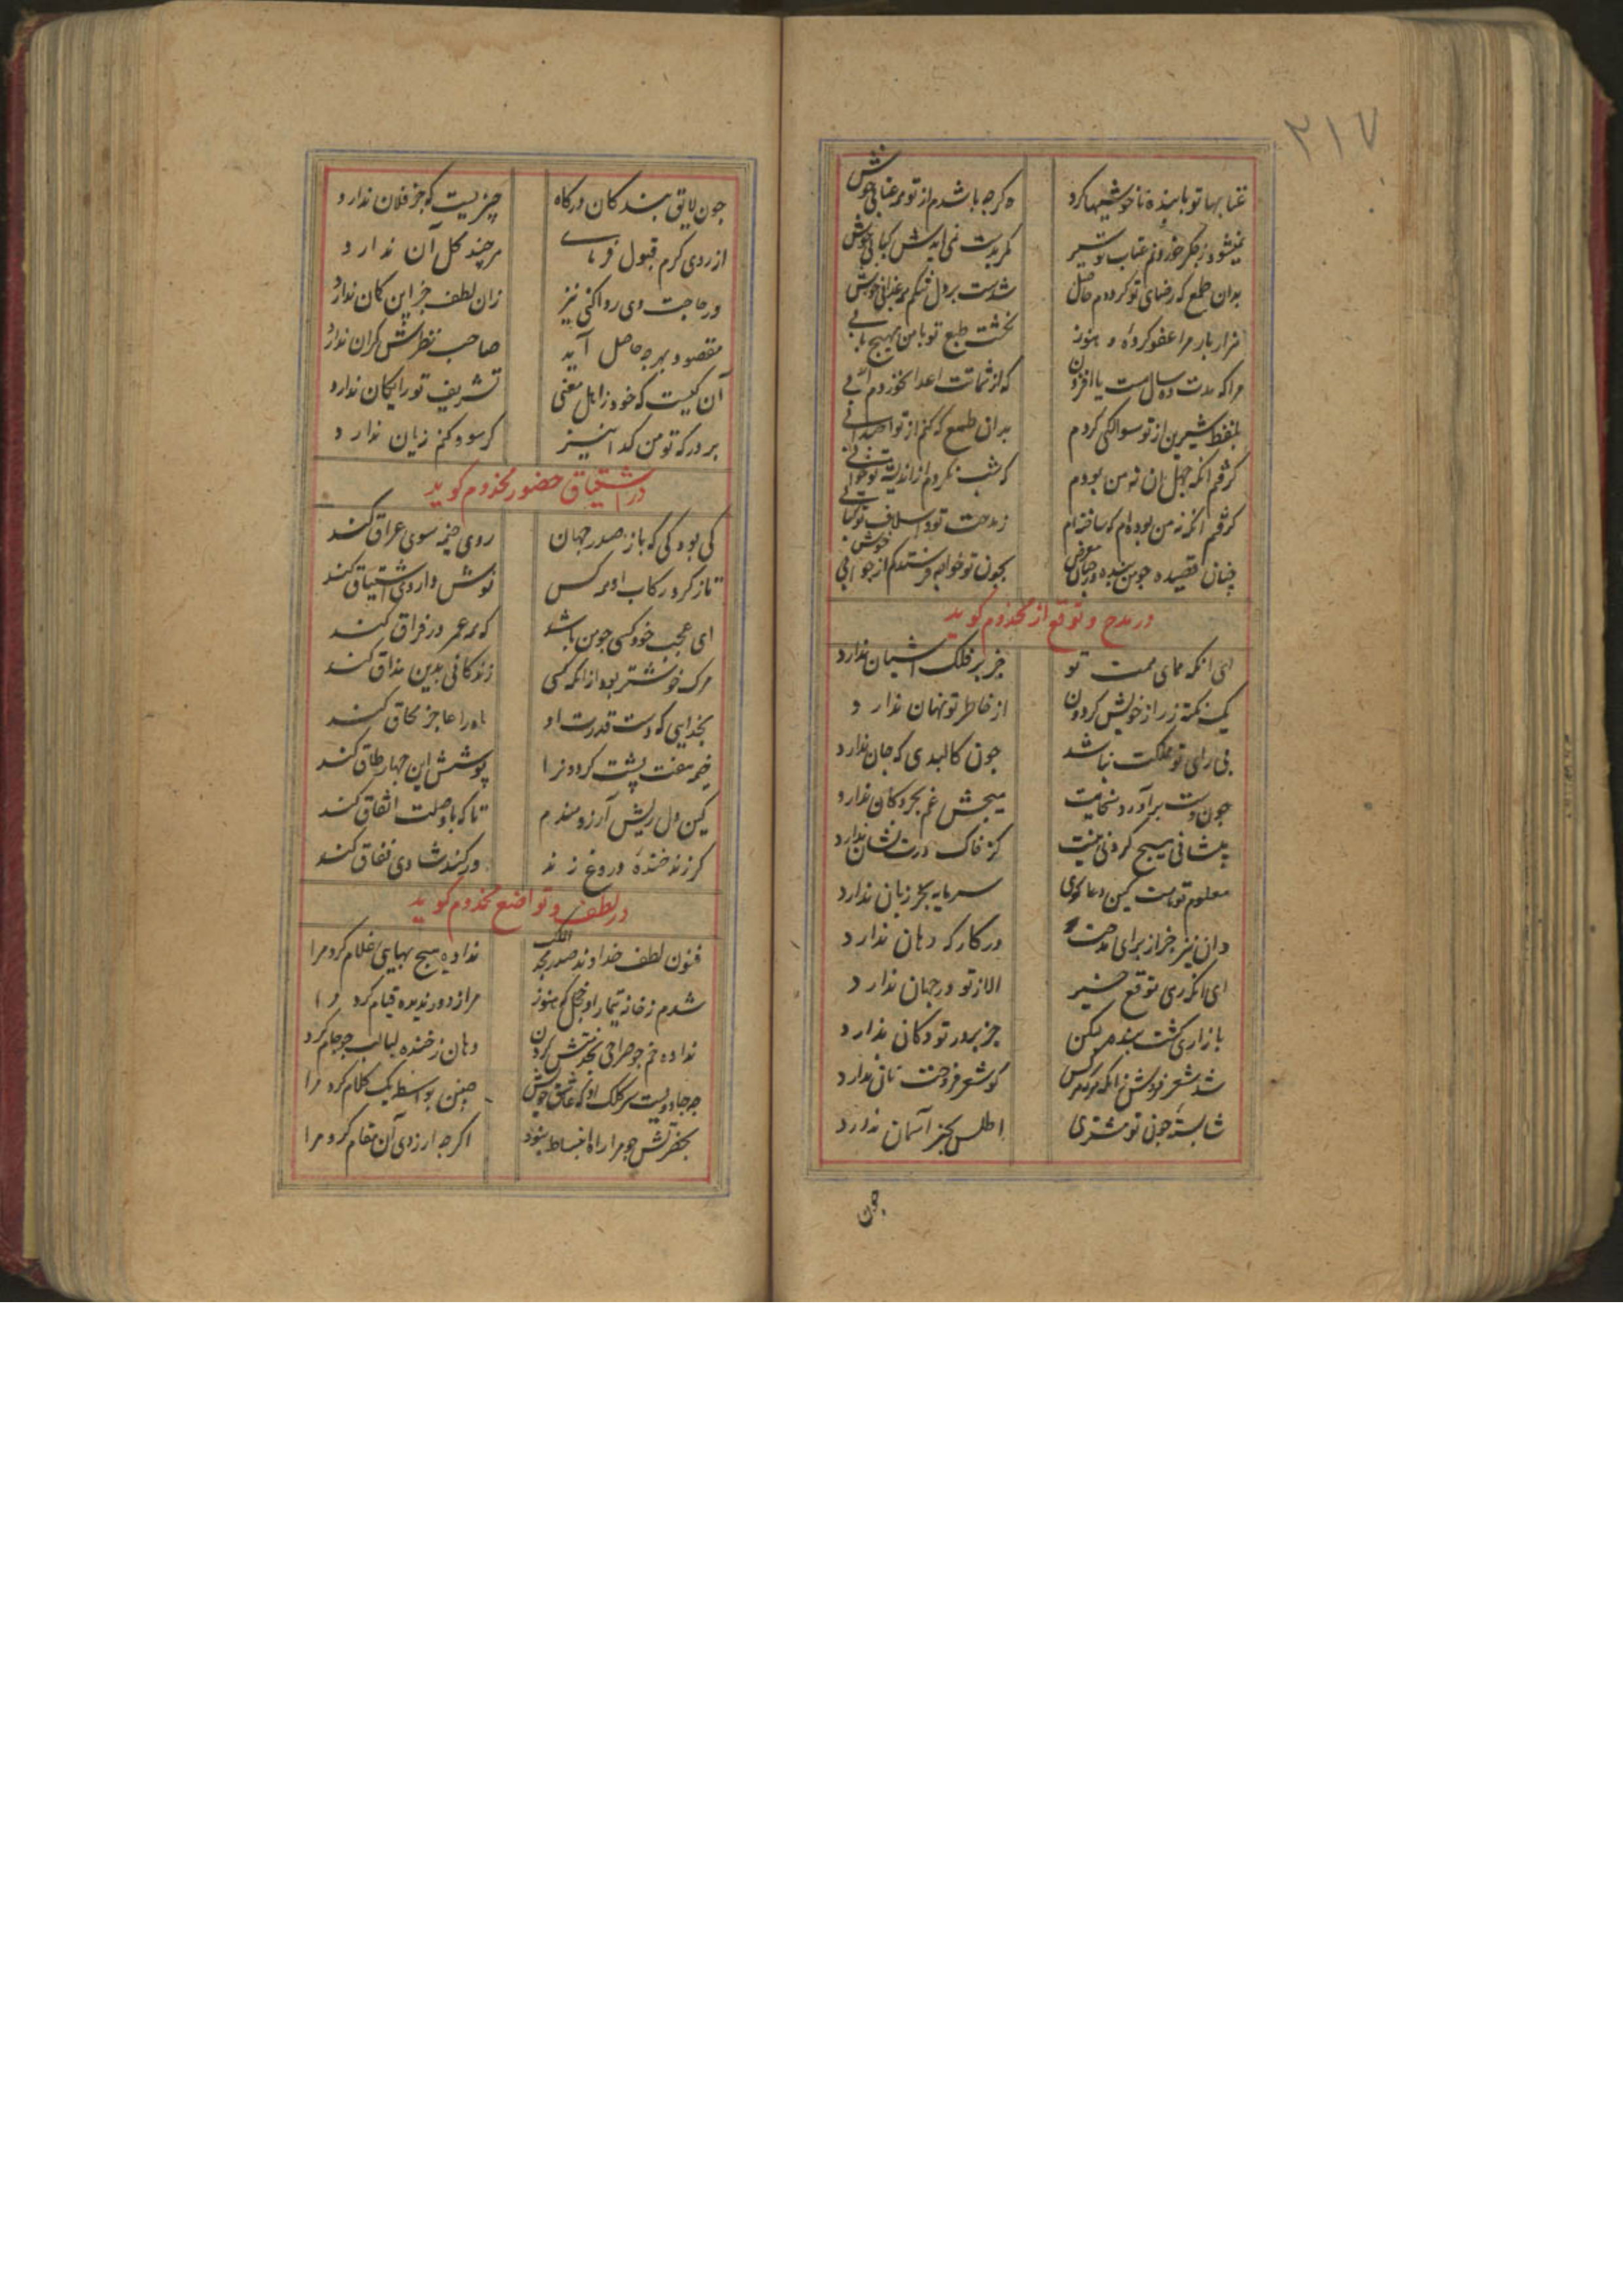 ۲۱۷
عتابها تو با بنده ناخوشیها کرد
که کرچه باشدم از تو همه عتابی خوش
نمیشود ز جکر خوردنم عتاب تو سیر
مکر بدست نمی آیدش کبابی خوش
بدان طمع که رضای تو کرددم حاصل
شدست بر دل تنکم همه عذابی خوش
هزار بار مرا عفو کرده و هنوز
نکشت طبع تو با من بهیچ بابی
مرا که مدت ده سال هست یا افزون
که از شماتت اعدا نخوردم آبی
بلفظ شیرین از تو سوالکی کردم
بدان طمع که کنم از تو
کرفتم انکه جهل ان نه من بودم
که شب نکردم از اندیشه تو خوابی
کرفتم انکه نه من بوده‌ام که ساخته‌ام
ز مدحت تو و اسلاف تو کتابی
چنان قصیده چو من بنده در چنان معرض
بچون تو خواجه فرستدکم از جوابی خوش
در مدح و توقع از مخدوم کوید
ای انکه همای همت تو
جز بر فلک آشیان ندارد
یک نکته ز راز خویش کردون
از خاطر تو نهان ندارد
بی رای تو مملکت نباشد
چون کالبدی که جان ندارد
چون دست برآورد سخایت
هیچش غم بحر و کان ندارد
پیشانی هیچ کردنی نیست
کز خاک درت نشان ندارد
معلوم تو هست کین دعا کوی
سرمایه بجز زبان ندارد
وان نیز جز از برای مدحت
در کارکه دهان ندارد
ای انکه رهی توقع خیر
الا از تو در جهان ندارد
بازاری کشت بنده لیکن
جز بر در تو دکان ندارد
شد شعر فروش زانکه هر کس
کو شعر فروخت نانی ندارد
شایسته چون تو مشتری
اطلس بجز آسمان ندارد
چون
چون لایق بندکان درکاه
چیزیست که جز فلان ندارد
از روی کرم قبول فرمای
هرچند کل آن ندارد
ور حاجت وی روا کنی نیز
زان لطف جز این کمان ندارد
مقصود بهر چه حاصل آید
صاحب نظرش کران ندارد
آن کیست که خود ز اهل معنی
تشریف تو رایکان ندارد
بر درکه تو من کدا نیز
کر سود کنم زیان ندارد
در اشتیاق حضور مخدوم کوید
کی بود کی که باز صدر جهان
روی خیمه سوی عراق کند
تا ز کرد رکاب او هر کس
نوش داروی اشتیاق کند
ای عجب خود کسی چو من باشد
که همه عمر در فراق کند
مرک خوشتر بود از انکه کسی
زندکانی بدین مذاق کند
بخدایی که دست قدرت او
ماه را عاجز محاق کند
خیمه هفت پشت کردون را
پوشش این چهار طاق کند
کین دل ریش آرزومندم
تا که با وصلت اتفاق کند
کر زند خنده دروغ زند
ور کند شادی نفاق کند
در لطف و تواضع مخدوم کوید
فنون لطف خداوند صدر مجد الملک
نداده هیچ بهایی غلام کرد مرا
شدم ز خانه تیمار او خجل که هنوز
مرا ز دور ندیده قیام کرد مرا
نداده خم چو صراحی بخدمتش کردن
دهان ز خنده لبالب چو جام کرد
چه جادویست سر کلک او که عاشق خویش
چنین بواسطه یک کلام کرد مرا
بحضرتش چو مرا راه انبساط نبود
اکرچه آرزوی آن مقام کرد مرا